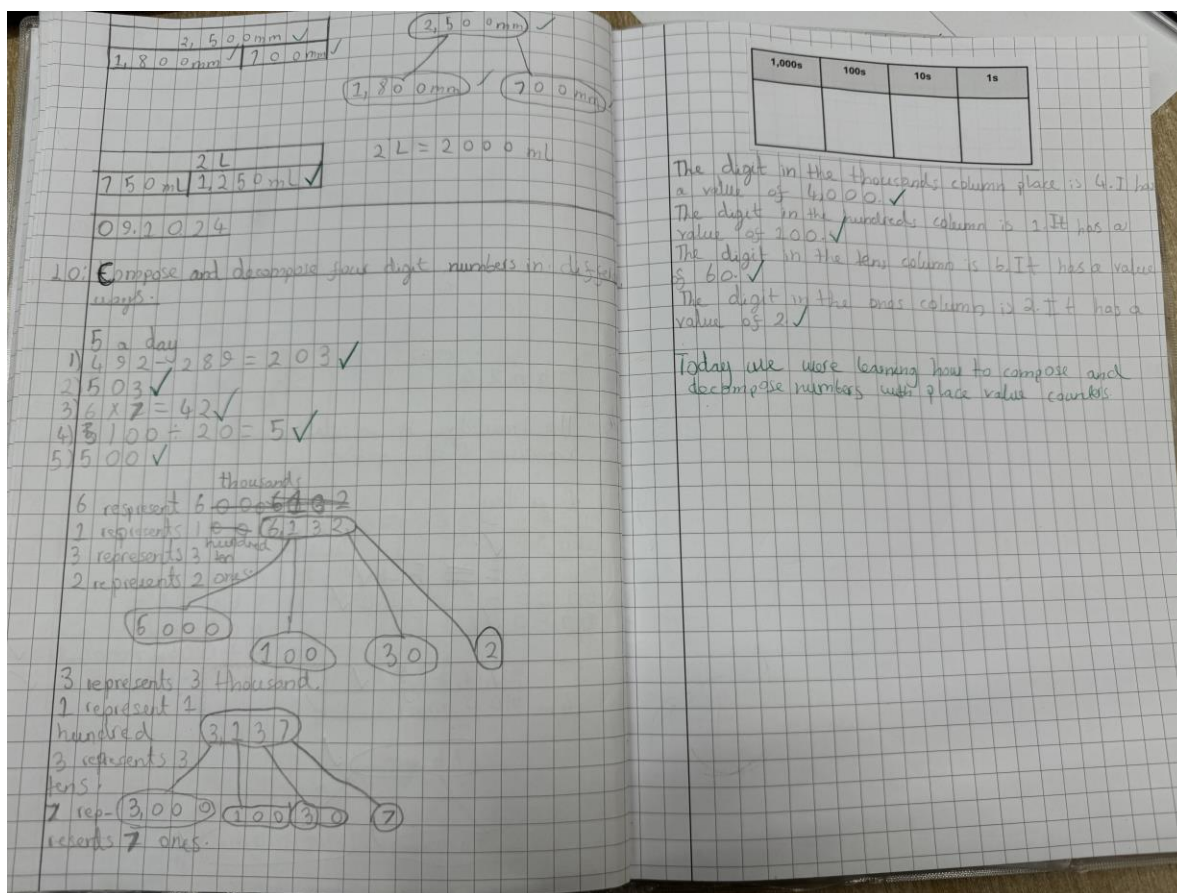 2,500mm
1,800mm 700mm
2,500mm
1,800mm 700mm
2L
750mL 1,250mL
2L = 2000 mL
09.2024
LO: Compose and decompose four digit numbers in
ways.
5 a day
1) 492 - 289 = 203
2) 503
3) 6 x 7 = 42
4) 100 ÷ 20 = 5
5) 500
thousands
6 respresent 6
1 represents 1 hundred
6,132
3 represents 3 ten
2 represents 2 ones
6000
100 30 2
3 represents 3 thousand.
1 represent 1
hundred 3,137
3 represents 3
tens.
7 rep- 3,000 100 30 7
resents 7 ones.
1,000s 100s 10s 1s
The digit in the thousands column place is 4. I has
a value of 4,000.
The digit in the hundreds column is 1. It has a
value of 100.
The digit in the tens column is 6. It has a value
of 60.
The digit in the ones column is 2. It has a
value of 2.
Today we were learning how to compose and
decompose numbers with place value counters